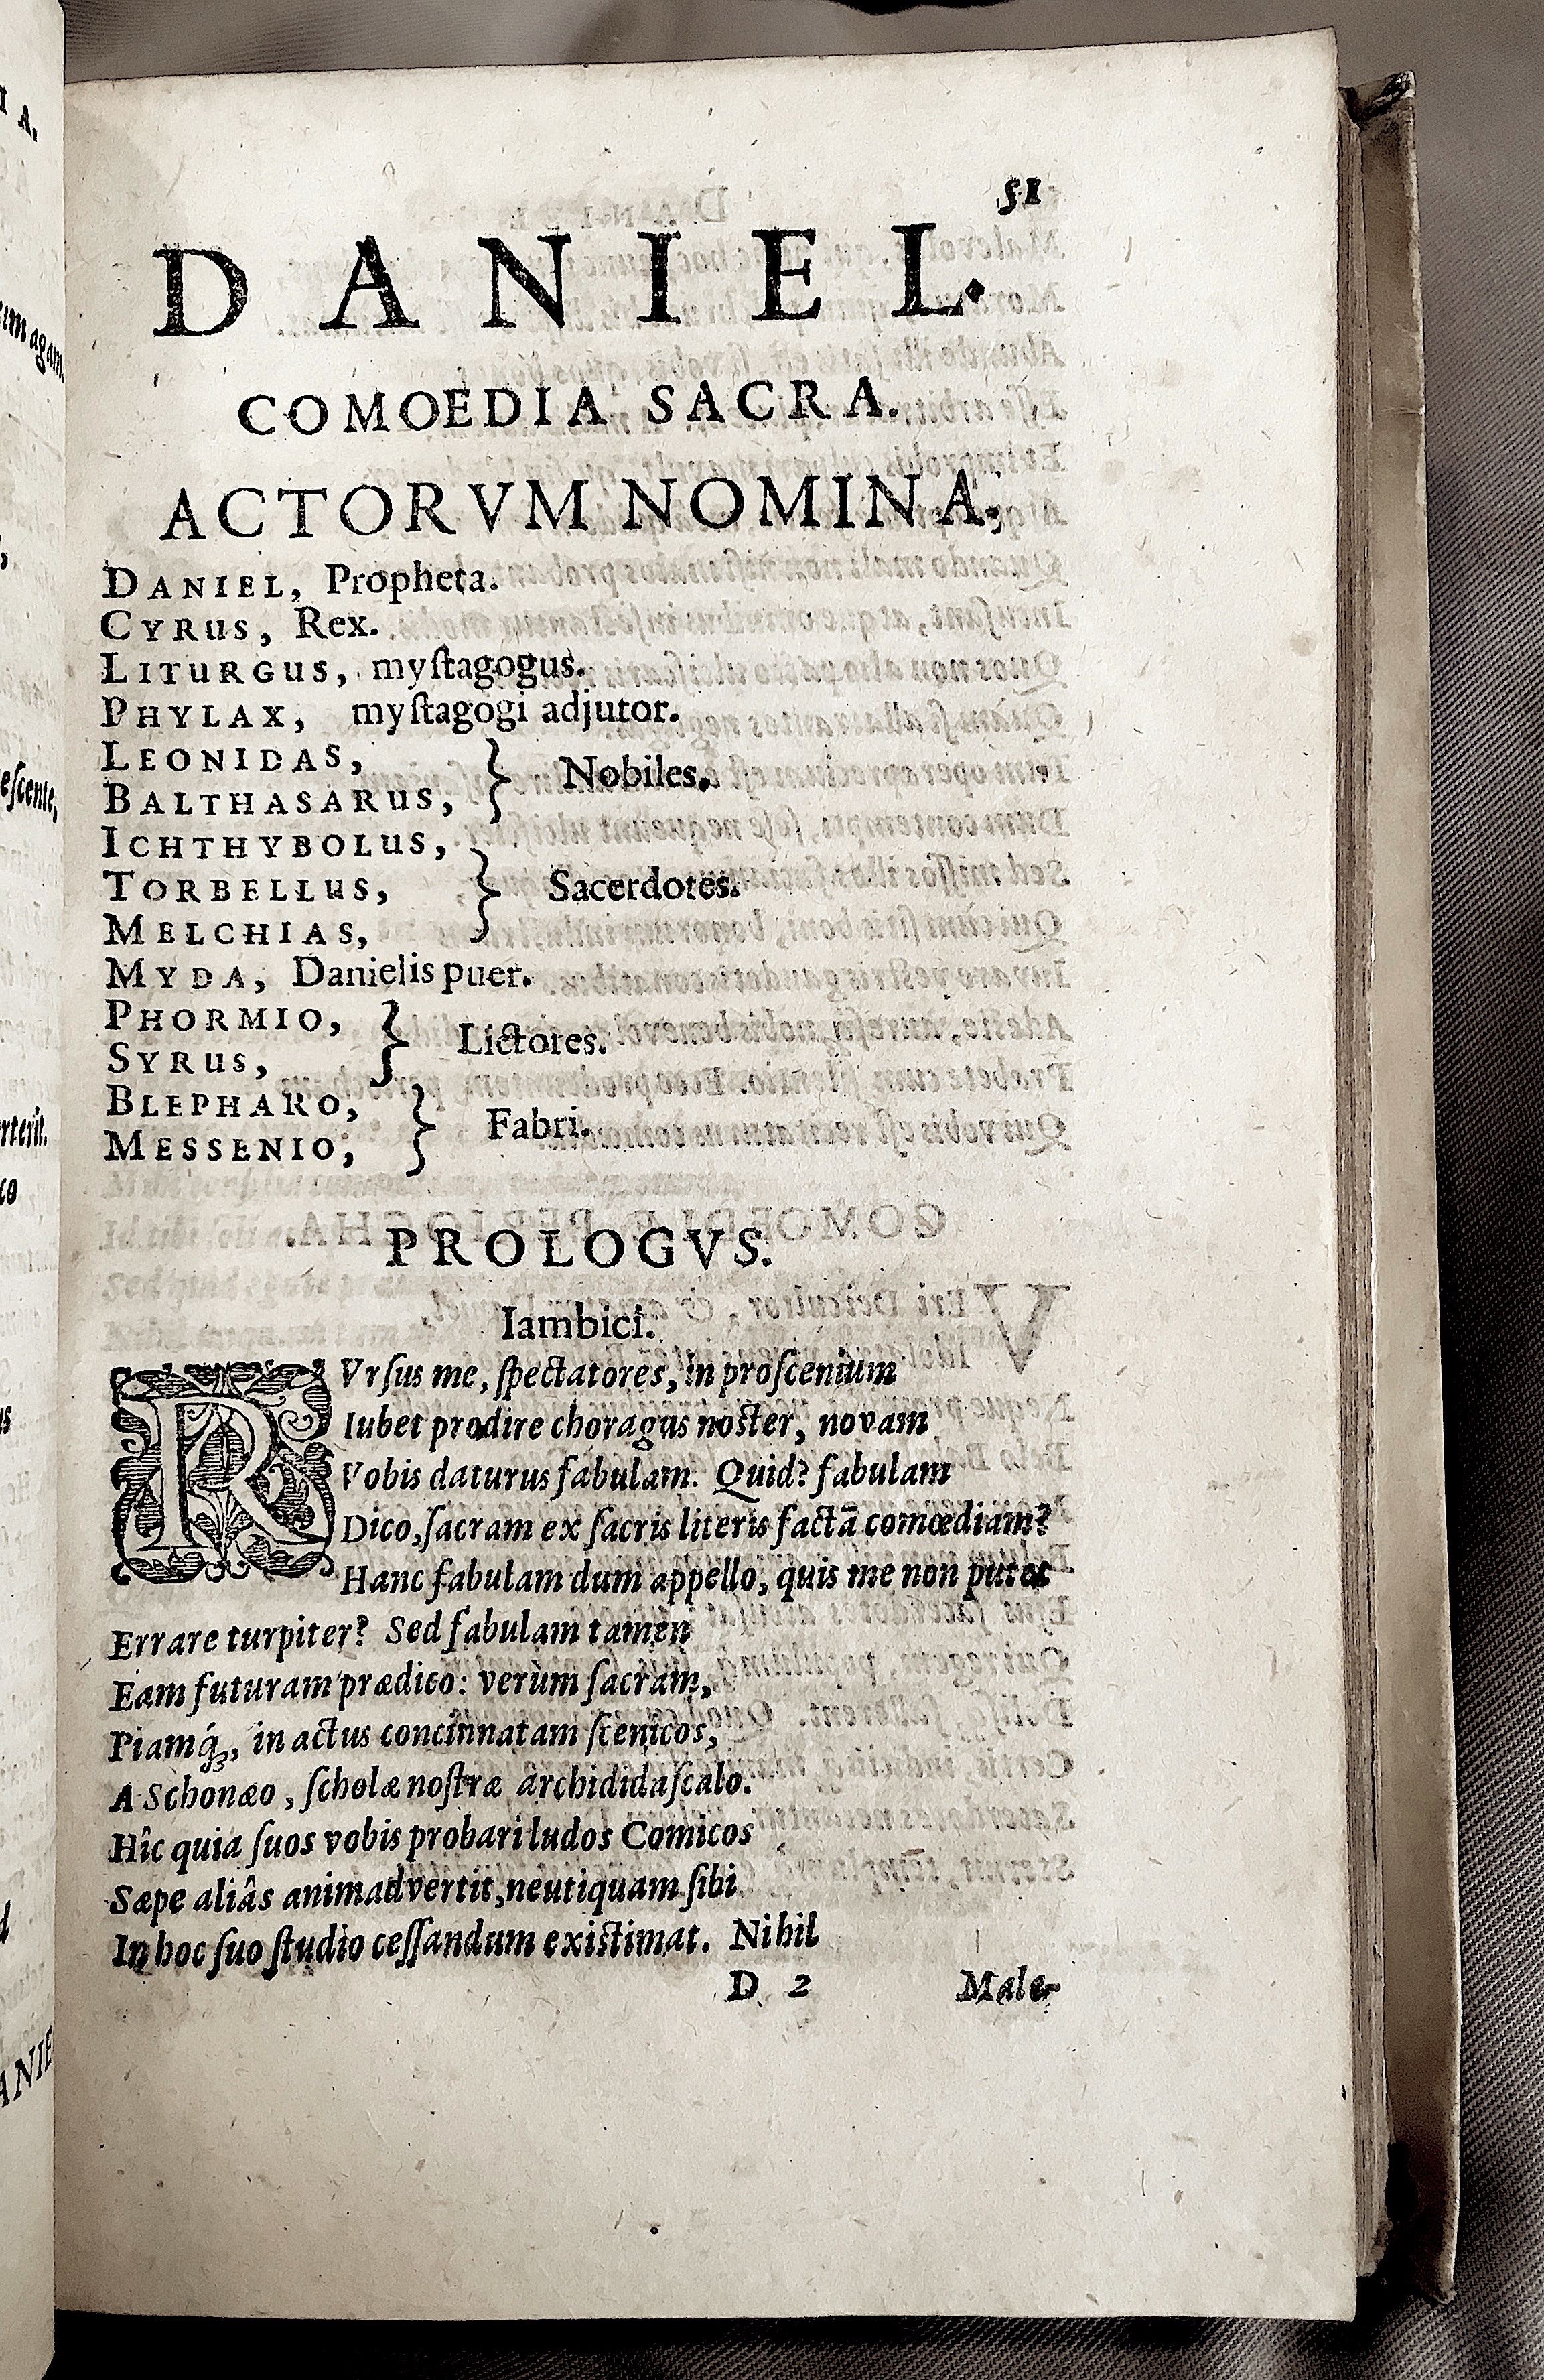 51
DANIEL.
COMOEDIA SACRA.
ACTORVM NOMINA.
DANIEL, Propheta.
CYRUS, Rex.
LITURGUS, myſtagogus.
PHYLAX, myſtagogi adjutor.
LEONIDAS,
BALTHASARUS, } Nobiles.
ICHTHYBOLUS,
TORBELLUS, } Sacerdotes.
MELCHIAS,
MYDA, Danielis puer.
PHORMIO,
SYRUS, } Lictores.
BLEPHARO,
MESSENIO, } Fabri.
PROLOGVS.
Iambici.
RVrſus me, ſpectatores, in proſcenium
Iubet prodire choragus noſter, novam
Vobis daturus fabulam. Quid? fabulam
Dico, ſacram ex ſacris literis factā comœdiam?
Hanc fabulam dum appello, quis me non putet
Errare turpiter? Sed fabulam tamen
Eam futuram prædico: verùm ſacram,
Piamq́;, in actus concinnatam ſcenicos,
A Schonæo, ſcholæ noſtræ archididaſcalo.
Hîc quia ſuos vobis probari ludos Comicos
Sæpe aliâs animadvertit, neutiquam ſibi
In hoc ſuo ſtudio ceſſandum exiſtimat. Nihil
D 2 Male-